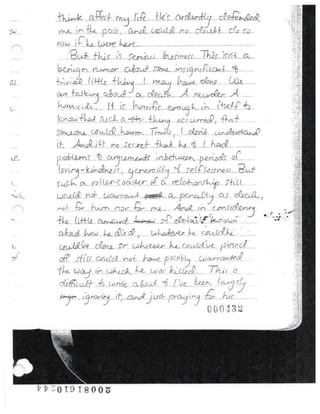 think affect my life. He's ardently defended
me in the past, and would no doubt do so
now if he were here.
But this is serious business. This isn't a
benign rumor about some insignificant &
trivial little thing I may have done. We
are talking about a death. A murder. A
homicide. It is horrific enough in itself to
know that such a thing occurred, that
someone could harm Travis, I don't understand
it. And it's no secret that he & I had
problems & arguments inbetween periods of
loving-kindness, generosity & selflessness. But
such a roller-coaster of a relationship still
would not warrant such a penalty as death,
not for him nor for me. And in considering
the little amount of detail known
about how he died, whatever he could've
could've done or whoever he could've pissed
off still could not have possibly warranted
the way in which he was killed. This is
difficult to write about & I've been largely
ignoring it, and just praying for his
000432